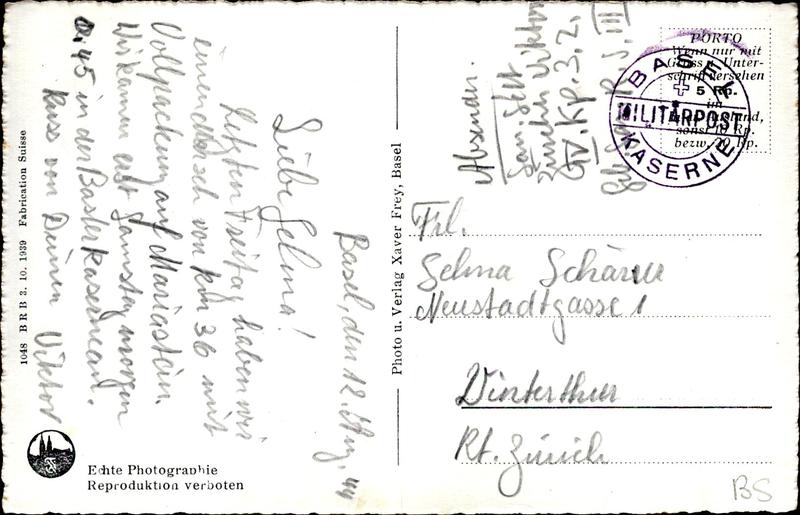 Basel, den 12. Aug. 44
Liebe Selma!
Letzten Freitag haben wir
einen Marsch von km 36 mit
Vollpackung auf Mariastein.
Wir kamen erst Samstag morgen
0.45 in der Baslerkaserne an.
Kuss von Deinem Viktor
1048 BRB 3. 10. 1939 Fabrication Suisse
Echte Photographie
Reproduktion verboten
Photo u. Verlag Xaver Frey, Basel
Absender.
San. Gefr.
Viktor
Kp. 3. 2.
R. S. III
PORTO
Wenn nur mit
Gruss u. Unter-
schrift versehen
5 Rp.
im
sonst 10 Rp.
bezw. 20 Rp.
BASEL
MILITÄRPOST
KASERNE
Frl.
Selma Schärer
Neustadtgasse 1
Winterthur
Kt. Zürich
BS